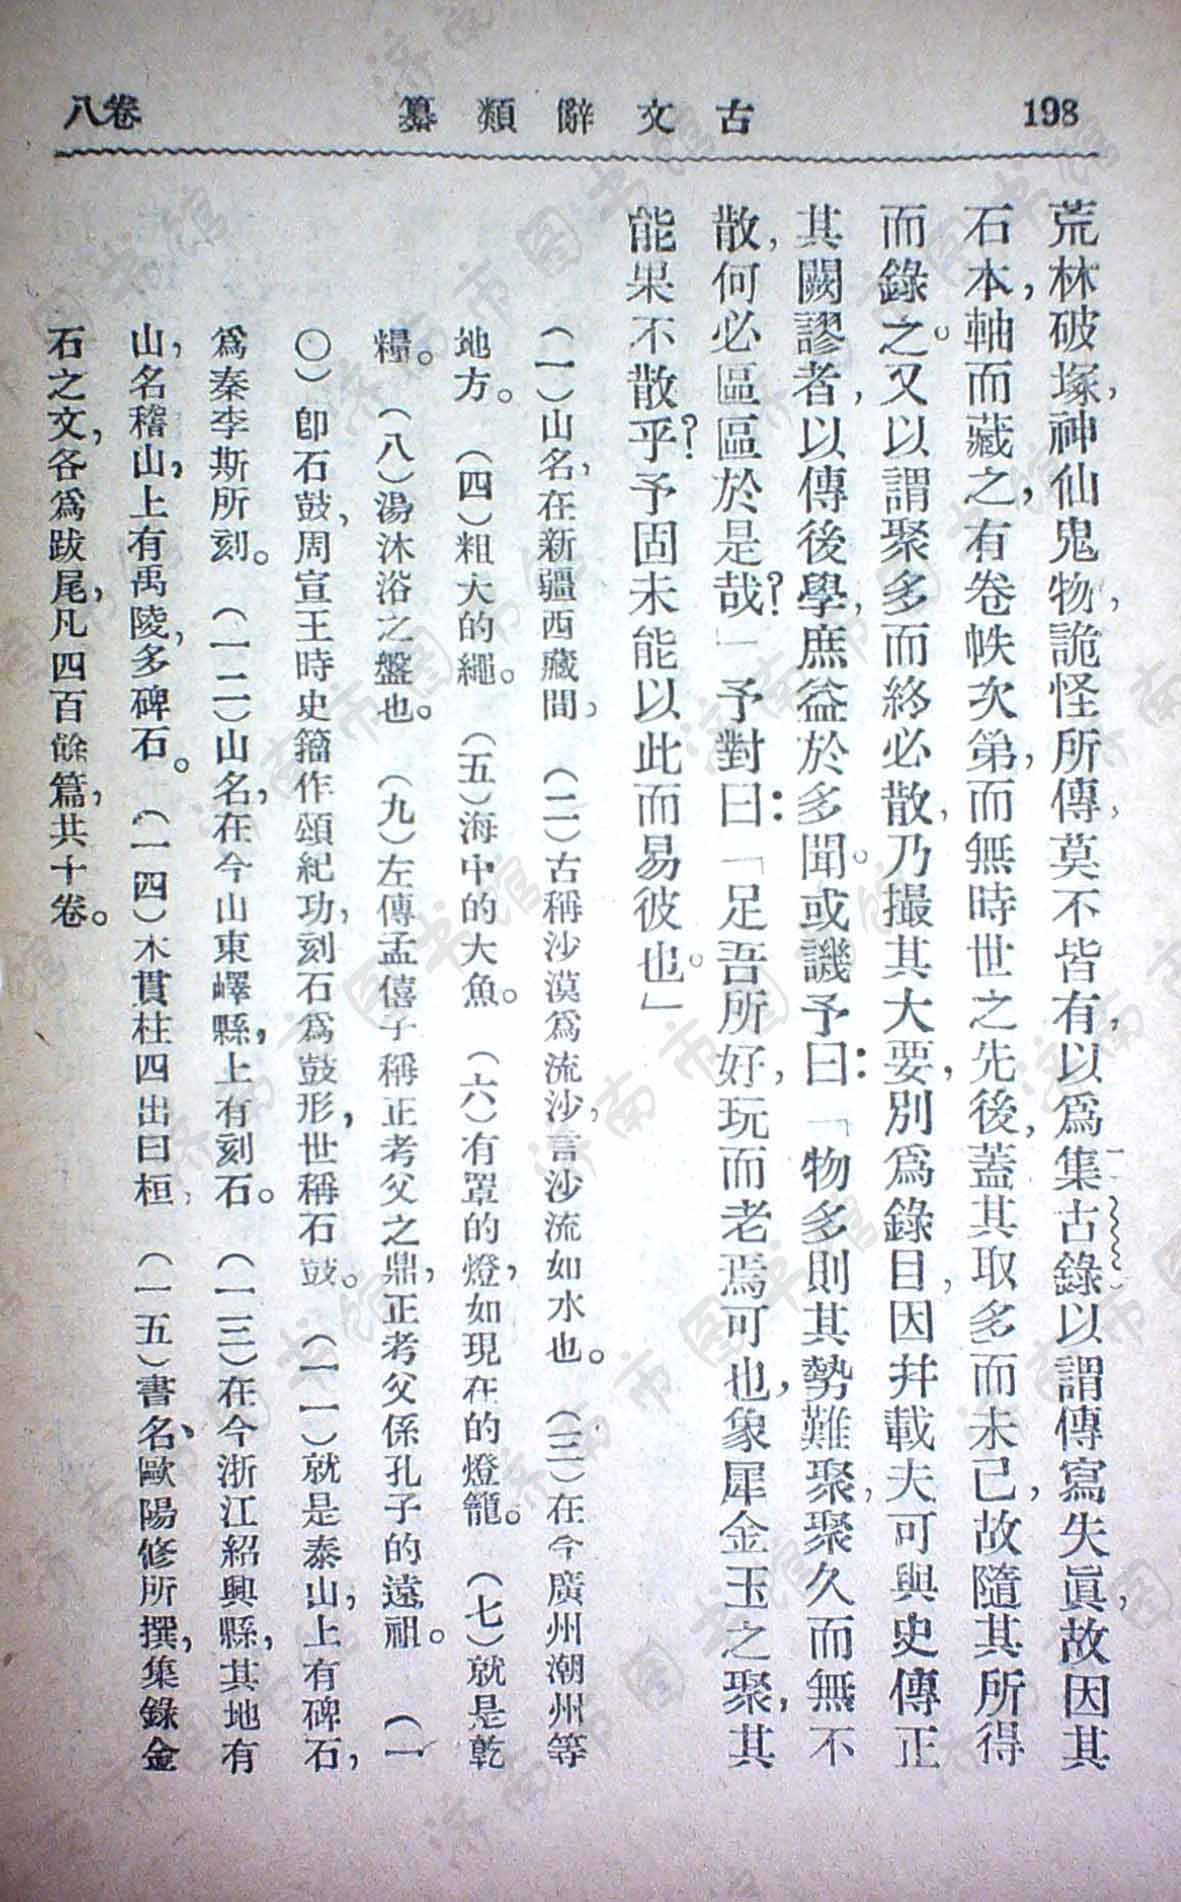 198
古文辭類纂
卷八
荒林破塚，神仙鬼物，詭怪所傳，莫不皆有，以爲集古錄以謂傳寫失眞，故因其
石本，軸而藏之，有卷帙次第，而無時世之先後，蓋其取多而未已，故隨其所得
而錄之。又以謂聚多而終必散，乃撮其大要，別爲錄目，因幷載夫可與史傳正
其闕謬者，以傳後學，庶益於多聞。或譏予曰：「物多則其勢難聚，聚久而無不
散，何必區區於是哉？」予對曰：「足吾所好，玩而老焉可也，象犀金玉之聚，其
能果不散乎？予固未能以此而易彼也。」
（一）山名，在新疆西藏間，　（二）古稱沙漠爲流沙，言沙流如水也。　（三）在今廣州潮州等
地方。　（四）粗大的繩。　（五）海中的大魚。　（六）有罩的燈，如現在的燈籠。　（七）就是乾
糧。　（八）湯沐浴之盤也。　（九）左傳孟僖子稱正考父之鼎，正考父係孔子的遠祖。　（一
〇）卽石鼓，周宣王時史籀作頌紀功，刻石爲鼓形，世稱石鼓。　（一一）就是泰山，上有碑石，
爲秦李斯所刻。　（一二）山名，在今山東嶧縣，上有刻石。　（一三）在今浙江紹興縣，其地有
山，名稽山，上有禹陵，多碑石。　（一四）木貫柱四出曰桓，　（一五）書名、歐陽修所撰，集錄金
石之文，各爲跋尾，凡四百餘篇，共十卷。
济南市图书馆